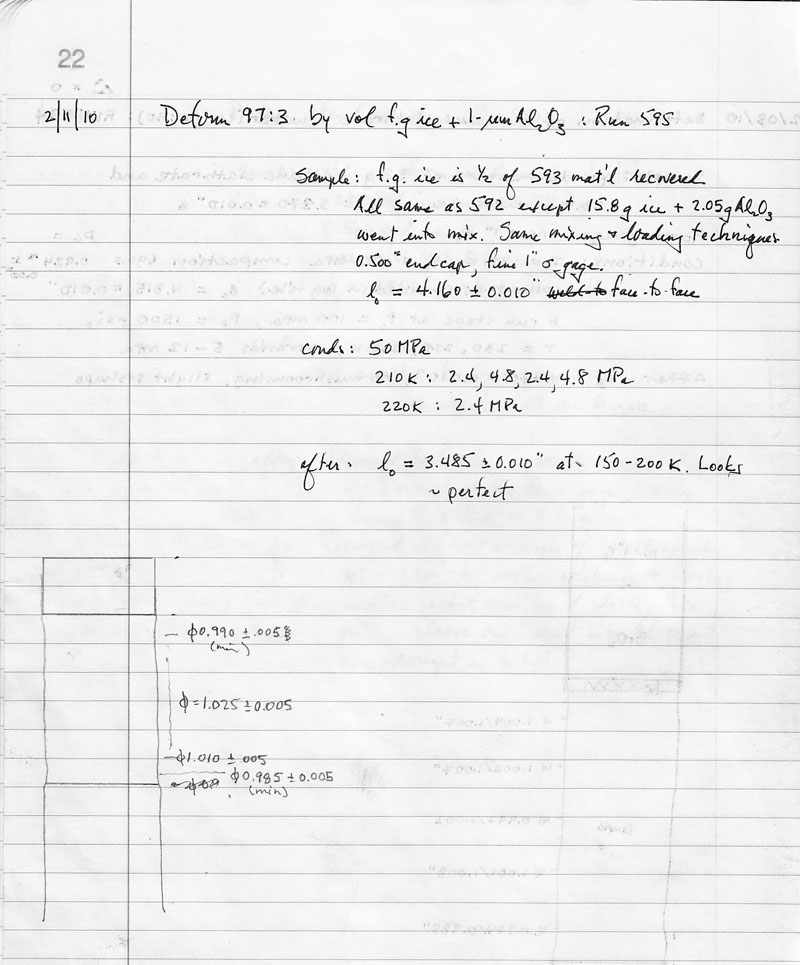 22
2/11/10 Deform 97:3 by vol f.g ice + 1-µm Al2O3 : Run 595
Sample: f.g. ice is 1/2 of 593 mat'l recovered
All same as 592 except 15.8g ice + 2.05g Al2O3
went into mix. Same mixing & loading techniques
0.500" endcap, fine 1" σ gage.
l0 = 4.160 ± 0.010" face-to-face
conds: 50 MPa
210K : 2.4, 4.8, 2.4, 4.8 MPa
220K : 2.4 MPa
after. l0 = 3.485 ± 0.010" at 150-200 K. Looks
~ perfect
— ϕ0.990 ± .005
(min)
ϕ = 1.025 ± 0.005
— ϕ1.010 ± .005
ϕ0.985 ± 0.005
(min)